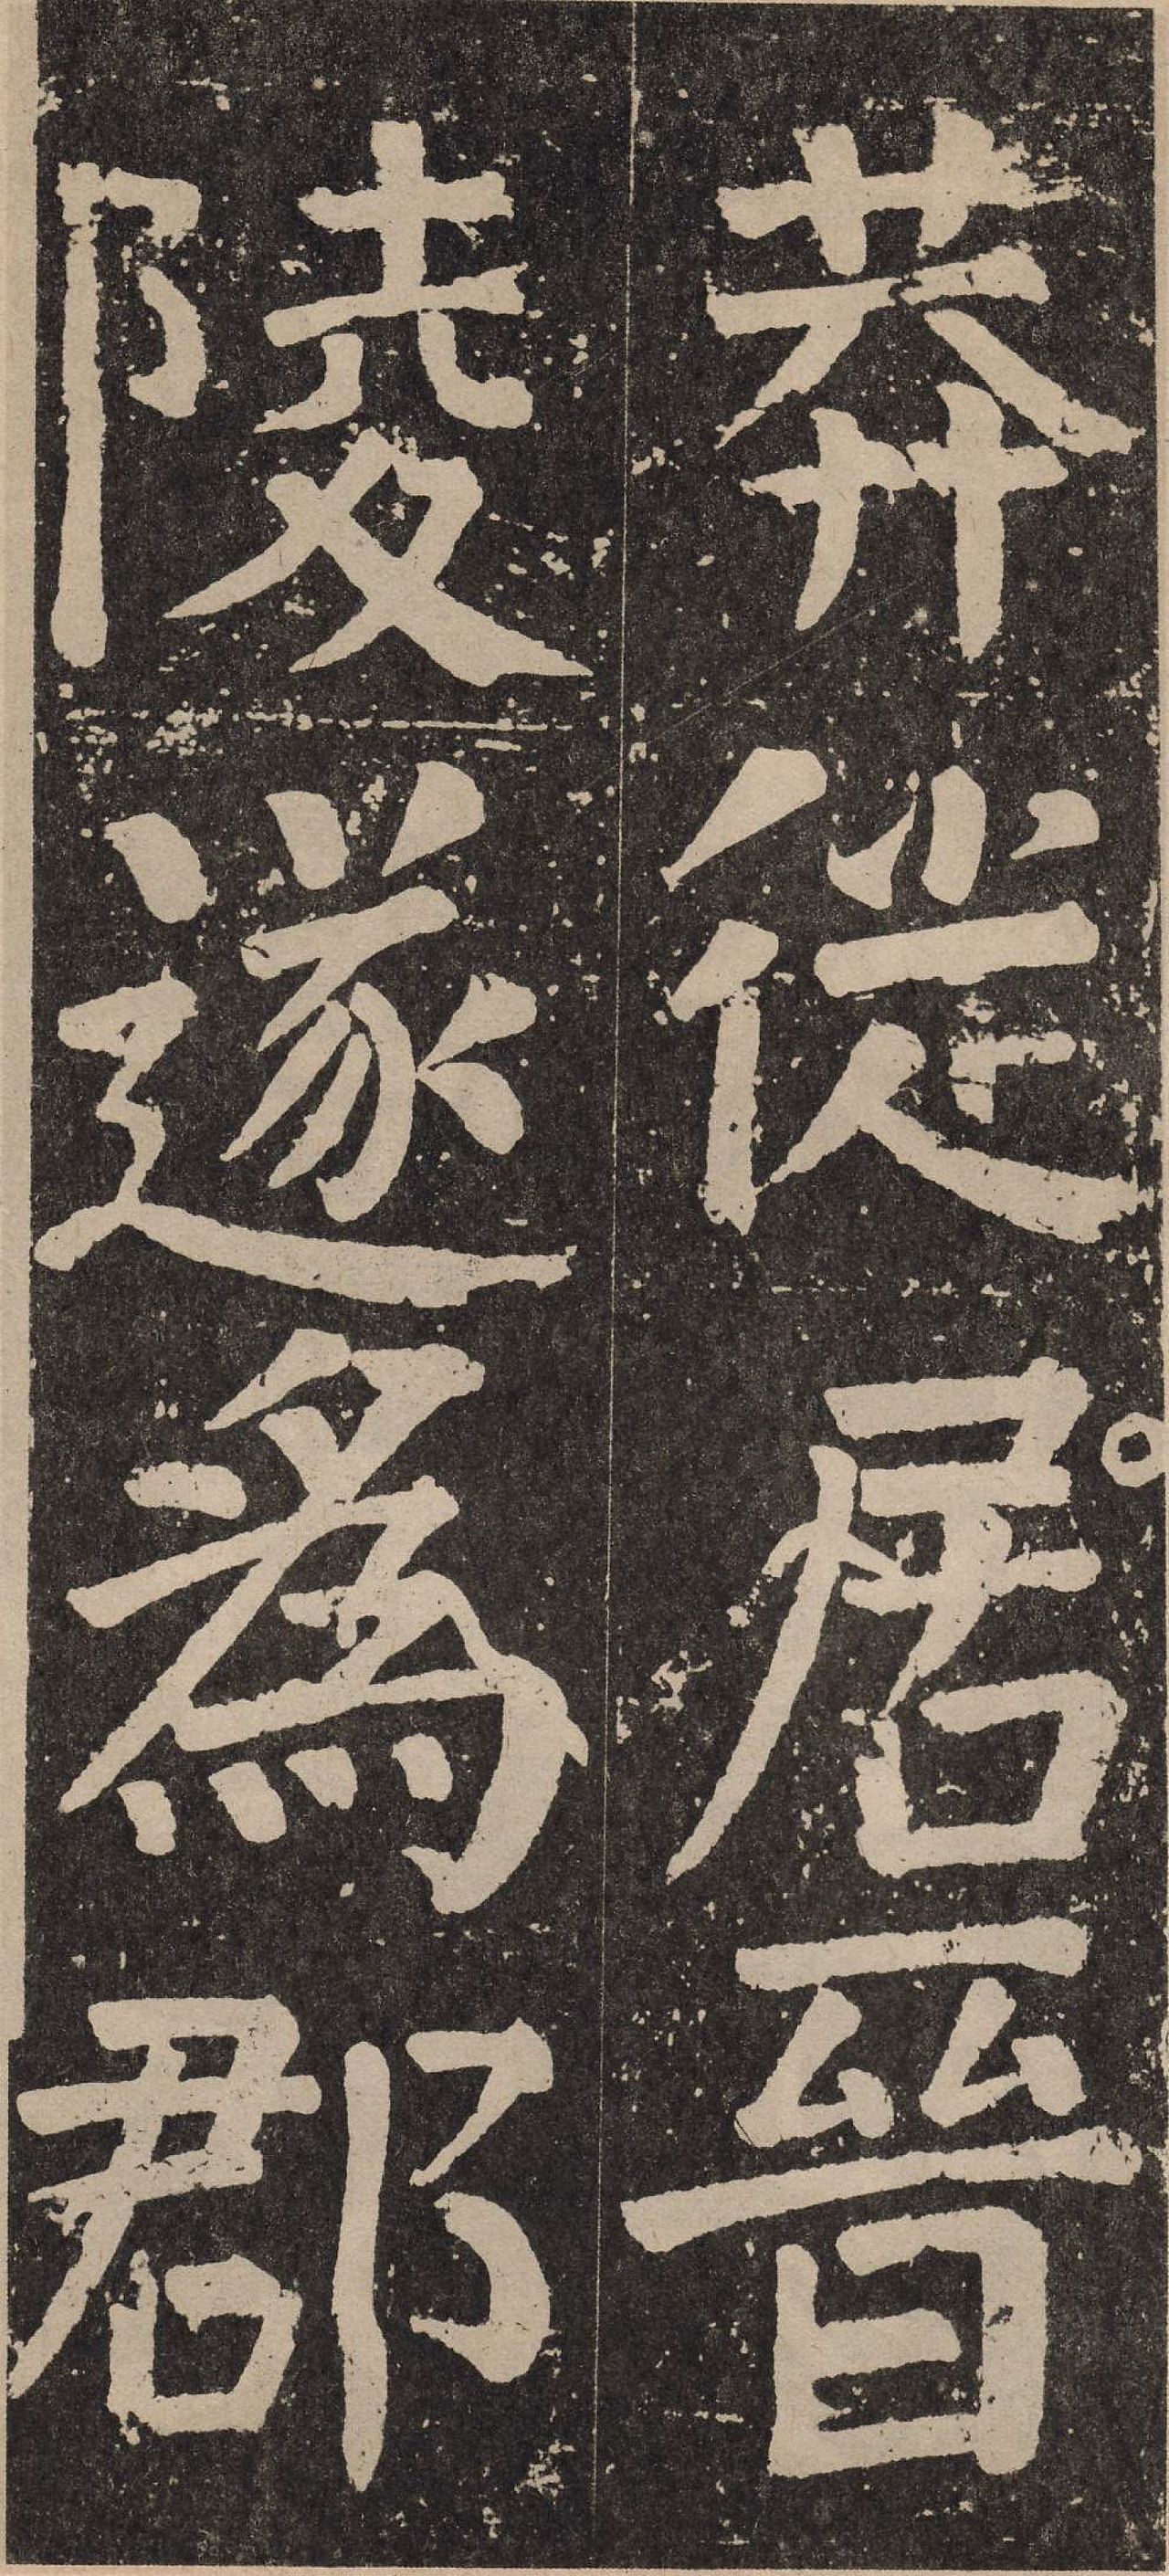 莽從居晉
陵遂為郡